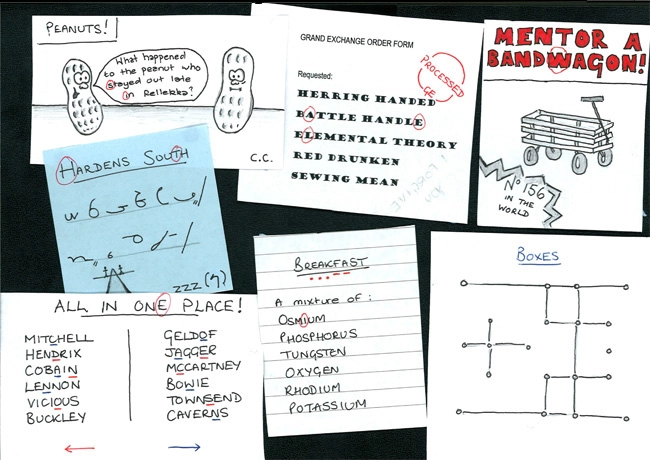 PEANUTS!
What happened
to the peanut who
stayed out late
in Rellekka?
C.C.
GRAND EXCHANGE ORDER FORM
PROCESSED
GE
Requested:
HERRING HANDED
BATTLE HANDLE
ELEMENTAL THEORY
RED DRUNKEN
SEWING MEAN
MENTOR A
BANDWAGON!
Nº 156
IN THE
WORLD
HARDENS SOUTH
zzz (7)
ALL IN ONE PLACE!
MITCHELL
HENDRIX
COBAIN
LENNON
VICIOUS
BUCKLEY
GELDOF
JAGGER
MCCARTNEY
BOWIE
TOWNSEND
CAVERNS
BREAKFAST
A mixture of:
OSMIUM
PHOSPHORUS
TUNGSTEN
OXYGEN
RHODIUM
POTASSIUM
BOXES